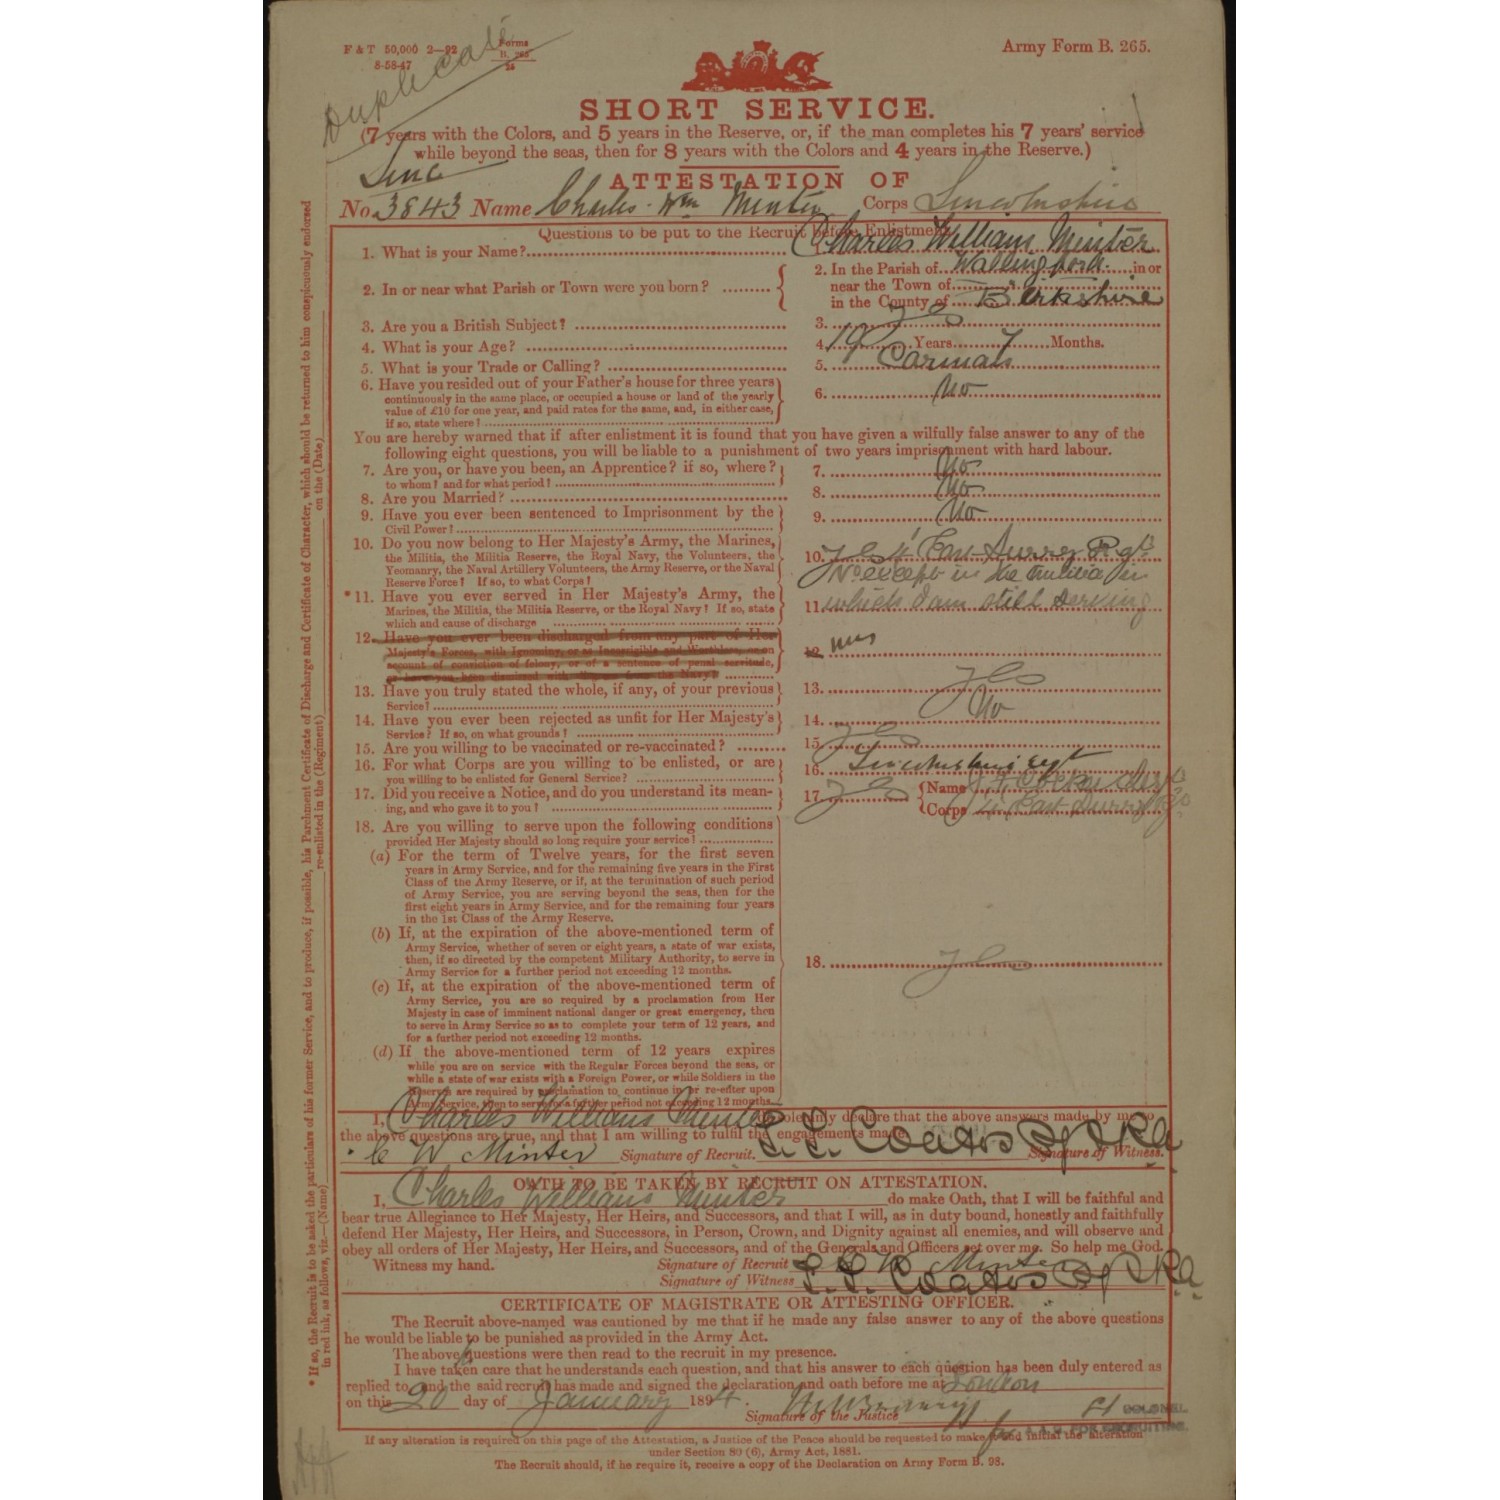 F & T 50,000 2—92
8-58-47
Forms
B. 265
24
Army Form B. 265.
Duplicate
SHORT SERVICE.
(7 years with the Colors, and 5 years in the Reserve, or, if the man completes his 7 years' service
while beyond the seas, then for 8 years with the Colors and 4 years in the Reserve.)
ATTESTATION OF
No. 3843 Name Charles Wm Minter Corps Lincolnshire
Questions to be put to the Recruit before Enlistment.
1. What is your Name? 1. Charles William Minter
2. In or near what Parish or Town were you born? 2. In the Parish of Wallingford in or
near the Town of
in the County of Berkshire
3. Are you a British Subject? 3. Yes
4. What is your Age? 4. 19 Years 7 Months.
5. What is your Trade or Calling? 5. Carman
6. Have you resided out of your Father's house for three years
continuously in the same place, or occupied a house or land of the yearly
value of £10 for one year, and paid rates for the same, and, in either case,
if so, state where? 6. No
You are hereby warned that if after enlistment it is found that you have given a wilfully false answer to any of the
following eight questions, you will be liable to a punishment of two years imprisonment with hard labour.
7. Are you, or have you been, an Apprentice? if so, where?
to whom? and for what period? 7. No
8. Are you Married? 8. No
9. Have you ever been sentenced to Imprisonment by the
Civil Power? 9. No
10. Do you now belong to Her Majesty's Army, the Marines,
the Militia, the Militia Reserve, the Royal Navy, the Volunteers, the
Yeomanry, the Naval Artillery Volunteers, the Army Reserve, or the Naval
Reserve Force? If so, to what Corps? 10. Yes 4 East Surrey Rgt
*11. Have you ever served in Her Majesty's Army, the
Marines, the Militia, the Militia Reserve, or the Royal Navy? If so, state
which and cause of discharge 11. No except in the militia in
which I am still serving
12. Have you ever been discharged from any part of Her
Majesty's Forces, with Ignominy, or as Incorrigible and Worthless, or on
account of conviction of felony, or of a sentence of penal servitude,
or have you been dismissed with disgrace from the Navy? 12
13. Have you truly stated the whole, if any, of your previous
Service? 13. Yes
14. Have you ever been rejected as unfit for Her Majesty's
Service? If so, on what grounds? 14. No
15. Are you willing to be vaccinated or re-vaccinated? 15. Yes
16. For what Corps are you willing to be enlisted, or are
you willing to be enlisted for General Service? 16. Lincolnshire Regt
17. Did you receive a Notice, and do you understand its mean-
ing, and who gave it to you? 17. Yes { Name Sergt
Corps 4 East Surrey Rgt
18. Are you willing to serve upon the following conditions
provided Her Majesty should so long require your service?
(a) For the term of Twelve years, for the first seven
years in Army Service, and for the remaining five years in the First
Class of the Army Reserve, or if, at the termination of such period
of Army Service, you are serving beyond the seas, then for the
first eight years in Army Service, and for the remaining four years
in the 1st Class of the Army Reserve.
(b) If, at the expiration of the above-mentioned term of
Army Service, whether of seven or eight years, a state of war exists,
then, if so directed by the competent Military Authority, to serve in
Army Service for a further period not exceeding 12 months.
18. Yes
(c) If, at the expiration of the above-mentioned term of
Army Service, you are so required by a proclamation from Her
Majesty in case of imminent national danger or great emergency, then
to serve in Army Service so as to complete your term of 12 years, and
for a further period not exceeding 12 months.
(d) If the above-mentioned term of 12 years expires
while you are on service with the Regular Forces beyond the seas, or
while a state of war exists with a Foreign Power, or while Soldiers in the
Reserve are required by proclamation to continue in or re-enter upon
Army Service, then to serve for a further period not exceeding 12 months.
I, Charles William Minter solemnly declare that the above answers made by me to
the above questions are true, and that I am willing to fulfil the engagements made.
C W Minter Signature of Recruit. L. L. Coates Signature of Witness.
OATH TO BE TAKEN BY RECRUIT ON ATTESTATION.
I, Charles William Minter do make Oath, that I will be faithful and
bear true Allegiance to Her Majesty, Her Heirs, and Successors, and that I will, as in duty bound, honestly and faithfully
defend Her Majesty, Her Heirs, and Successors, in Person, Crown, and Dignity against all enemies, and will observe and
obey all orders of Her Majesty, Her Heirs, and Successors, and of the Generals and Officers set over me. So help me God.
Witness my hand. Signature of Recruit C W Minter
Signature of Witness L. L. Coates
CERTIFICATE OF MAGISTRATE OR ATTESTING OFFICER.
The Recruit above-named was cautioned by me that if he made any false answer to any of the above questions
he would be liable to be punished as provided in the Army Act.
The above questions were then read to the recruit in my presence.
I have taken care that he understands each question, and that his answer to each question has been duly entered as
replied to, and the said recruit has made and signed the declaration and oath before me at London
on this 20 day of January 1894.
Signature of the Justice
COLONEL
FOR RECRUITING.
If any alteration is required on this page of the Attestation, a Justice of the Peace should be requested to make it and initial the alteration
under Section 80 (6), Army Act, 1881.
The Recruit should, if he require it, receive a copy of the Declaration on Army Form B. 98.
* If so, the Recruit is to be asked the particulars of his former Service, and to produce, if possible, his Parchment Certificate of Discharge and Certificate of Character, which should be returned to him conspicuously endorsed
in red ink, as follows, viz.—(Name) re-enlisted in the (Regiment) on the (Date)